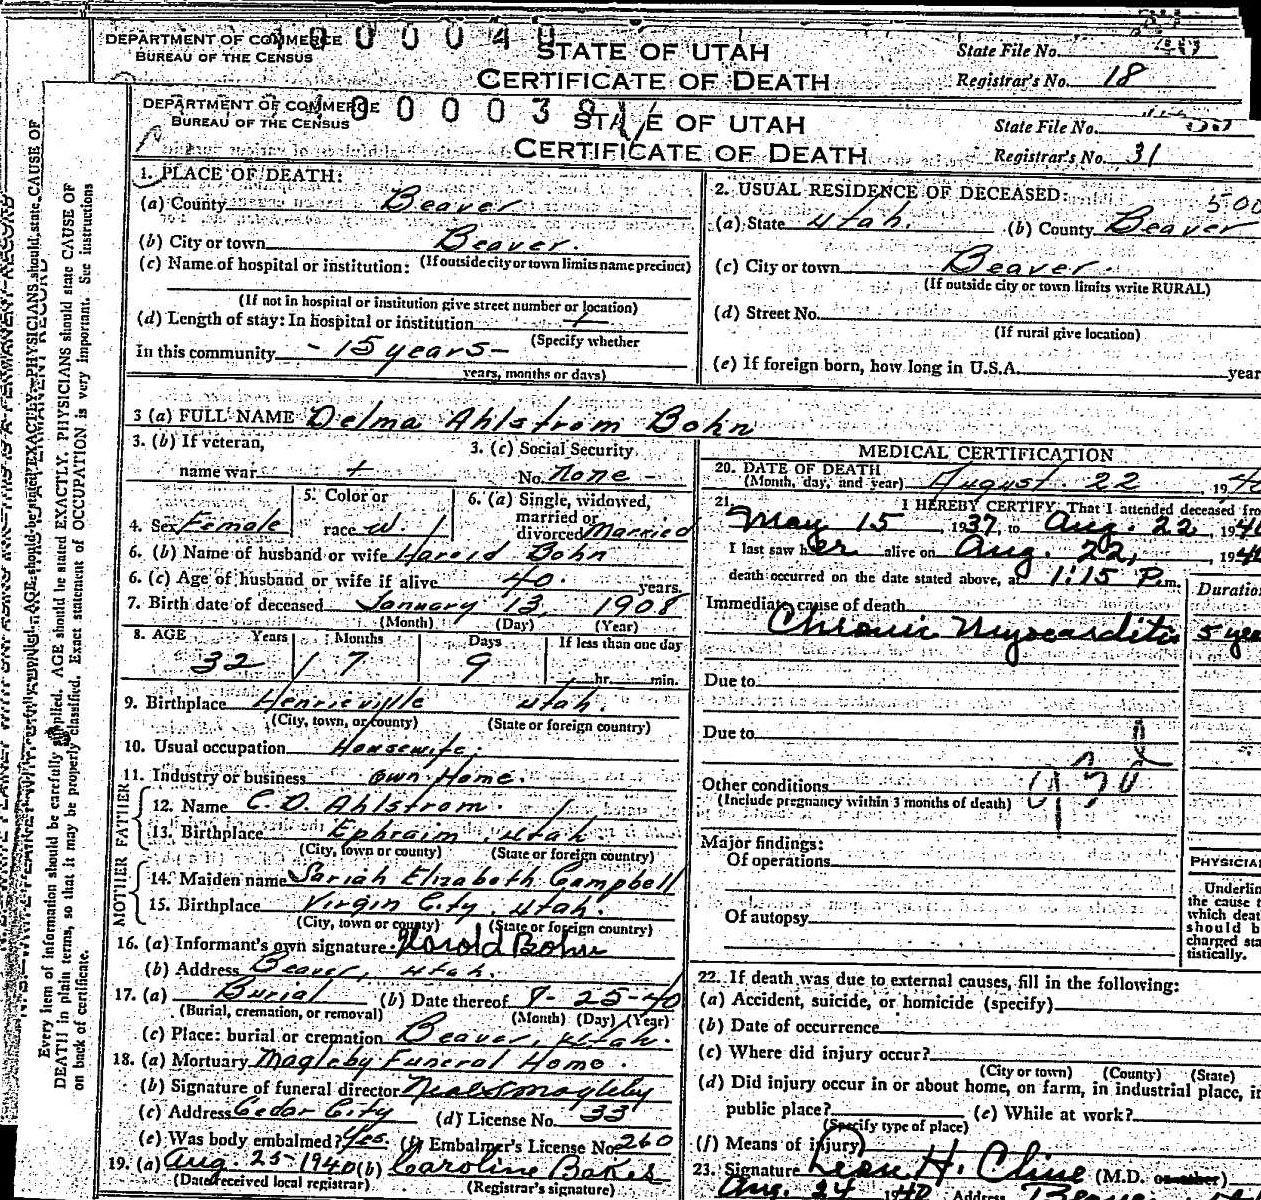 DEPARTMENT OF COMMERCE
BUREAU OF THE CENSUS
STATE OF UTAH
CERTIFICATE OF DEATH
State File No.
Registrar's No. 18
DEPARTMENT OF COMMERCE
BUREAU OF THE CENSUS
STATE OF UTAH
CERTIFICATE OF DEATH
State File No.
Registrar's No. 31
Every item of information should be carefully supplied. AGE should be stated EXACTLY. PHYSICIANS should state CAUSE OF
DEATH in plain terms, so that it may be properly classified. Exact statement of OCCUPATION is very important. See instructions
on back of certificate.
1. PLACE OF DEATH:
(a) County Beaver
(b) City or town Beaver.
(If outside city or town limits name precinct)
(c) Name of hospital or institution:
(If not in hospital or institution give street number or location)
(d) Length of stay: In hospital or institution
(Specify whether
In this community - 15 years -
years, months or days)
2. USUAL RESIDENCE OF DECEASED:
500
(a) State Utah. (b) County Beaver
(c) City or town Beaver.
(If outside city or town limits write RURAL)
(d) Street No.
(If rural give location)
(e) If foreign born, how long in U.S.A. year
3 (a) FULL NAME Delma Ahlstrom Bohn
3. (b) If veteran,
name war
3. (c) Social Security
No. none -
4. Sex Female
5. Color or
race W.
6. (a) Single, widowed,
married or
divorced Married
6. (b) Name of husband or wife Harold Bohn
6. (c) Age of husband or wife if alive 40. years.
7. Birth date of deceased January 13, 1908
(Month) (Day) (Year)
8. AGE Years Months Days If less than one day
32 7 9 hr. min.
9. Birthplace Henrieville Utah.
(City, town, or county) (State or foreign country)
10. Usual occupation Housewife.
11. Industry or business own Home.
FATHER
12. Name C. D. Ahlstrom.
13. Birthplace Ephraim, Utah
(City, town or county) (State or foreign country)
MOTHER
14. Maiden name Sariah Elizabeth Campbell
15. Birthplace Virgin City, Utah.
(City, town or county) (State or foreign country)
16. (a) Informant's own signature Harold Bohn
(b) Address Beaver, Utah.
17. (a) Burial (b) Date thereof 8-25-40
(Burial, cremation, or removal) (Month) (Day) (Year)
(c) Place: burial or cremation Beaver, Utah.
18. (a) Mortuary Magleby Funeral Home.
(b) Signature of funeral director
(c) Address Cedar City (d) License No. 33
(e) Was body embalmed? Yes. (f) Embalmer's License No. 260
19. (a) Aug. 25-1940 (b) Caroline Bakes
(Date received local registrar) (Registrar's signature)
MEDICAL CERTIFICATION
20. DATE OF DEATH
(Month, day, and year) August. 22, 1940
21. I HEREBY CERTIFY, That I attended deceased fro
May 15, 1937, to Aug. 22, 1940
I last saw her alive on Aug. 22, 1940
death occurred on the date stated above, at 1:15 P.m.
Duratio
Immediate cause of death
Chronic Myocarditis 5 yea
Due to
Due to
Other conditions
(Include pregnancy within 3 months of death)
Major findings:
Of operations
Of autopsy
PHYSICIA
Underlin
the cause t
which deat
should b
charged sta
tistically.
22. If death was due to external causes, fill in the following:
(a) Accident, suicide, or homicide (specify)
(b) Date of occurrence
(c) Where did injury occur?
(City or town) (County) (State)
(d) Did injury occur in or about home, on farm, in industrial place, in
public place? (e) While at work?
(Specify type of place)
(f) Means of injury
23. Signature H. Cline (M.D. or other)
Aug. 24 1940 Address